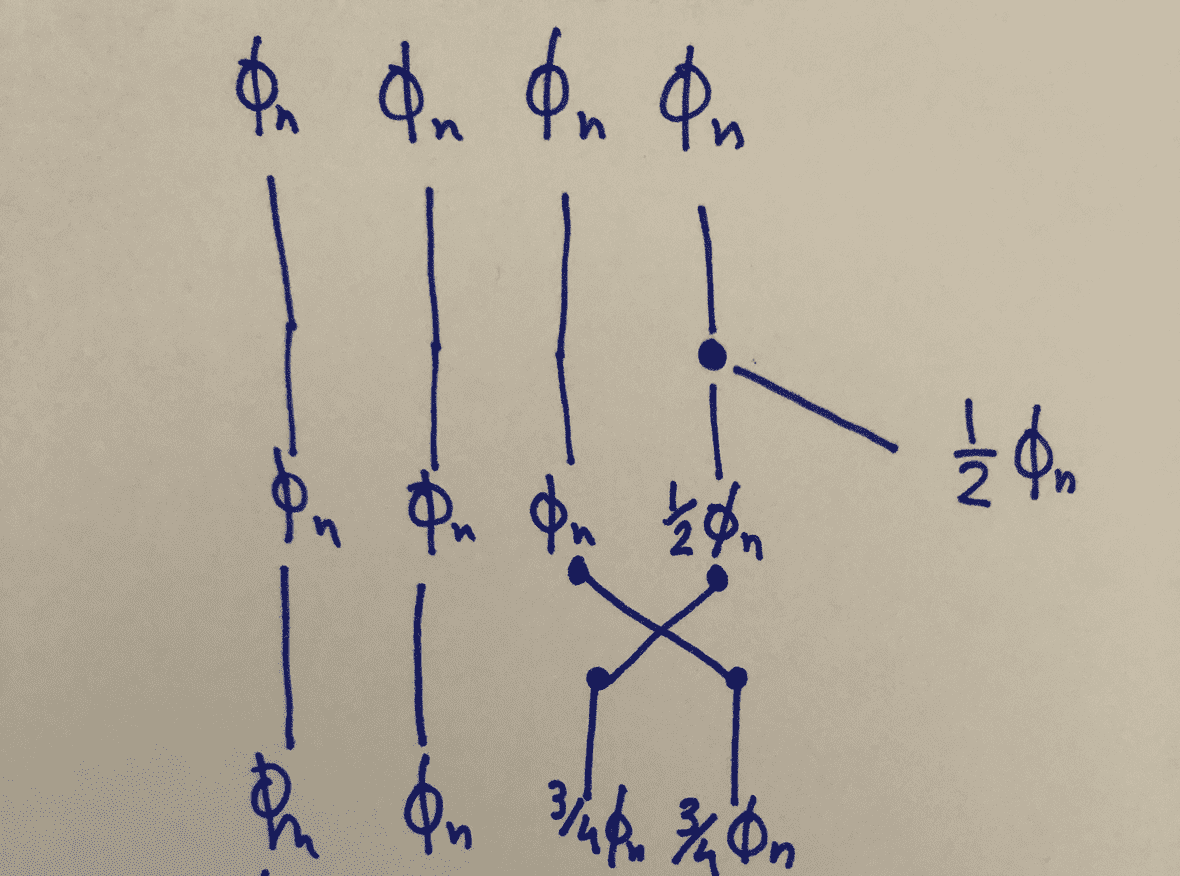 ϕn ϕn ϕn ϕn
1/2 ϕn
ϕn ϕn ϕn 1/2 ϕn
ϕn ϕn 3/4 ϕn 3/4 ϕn